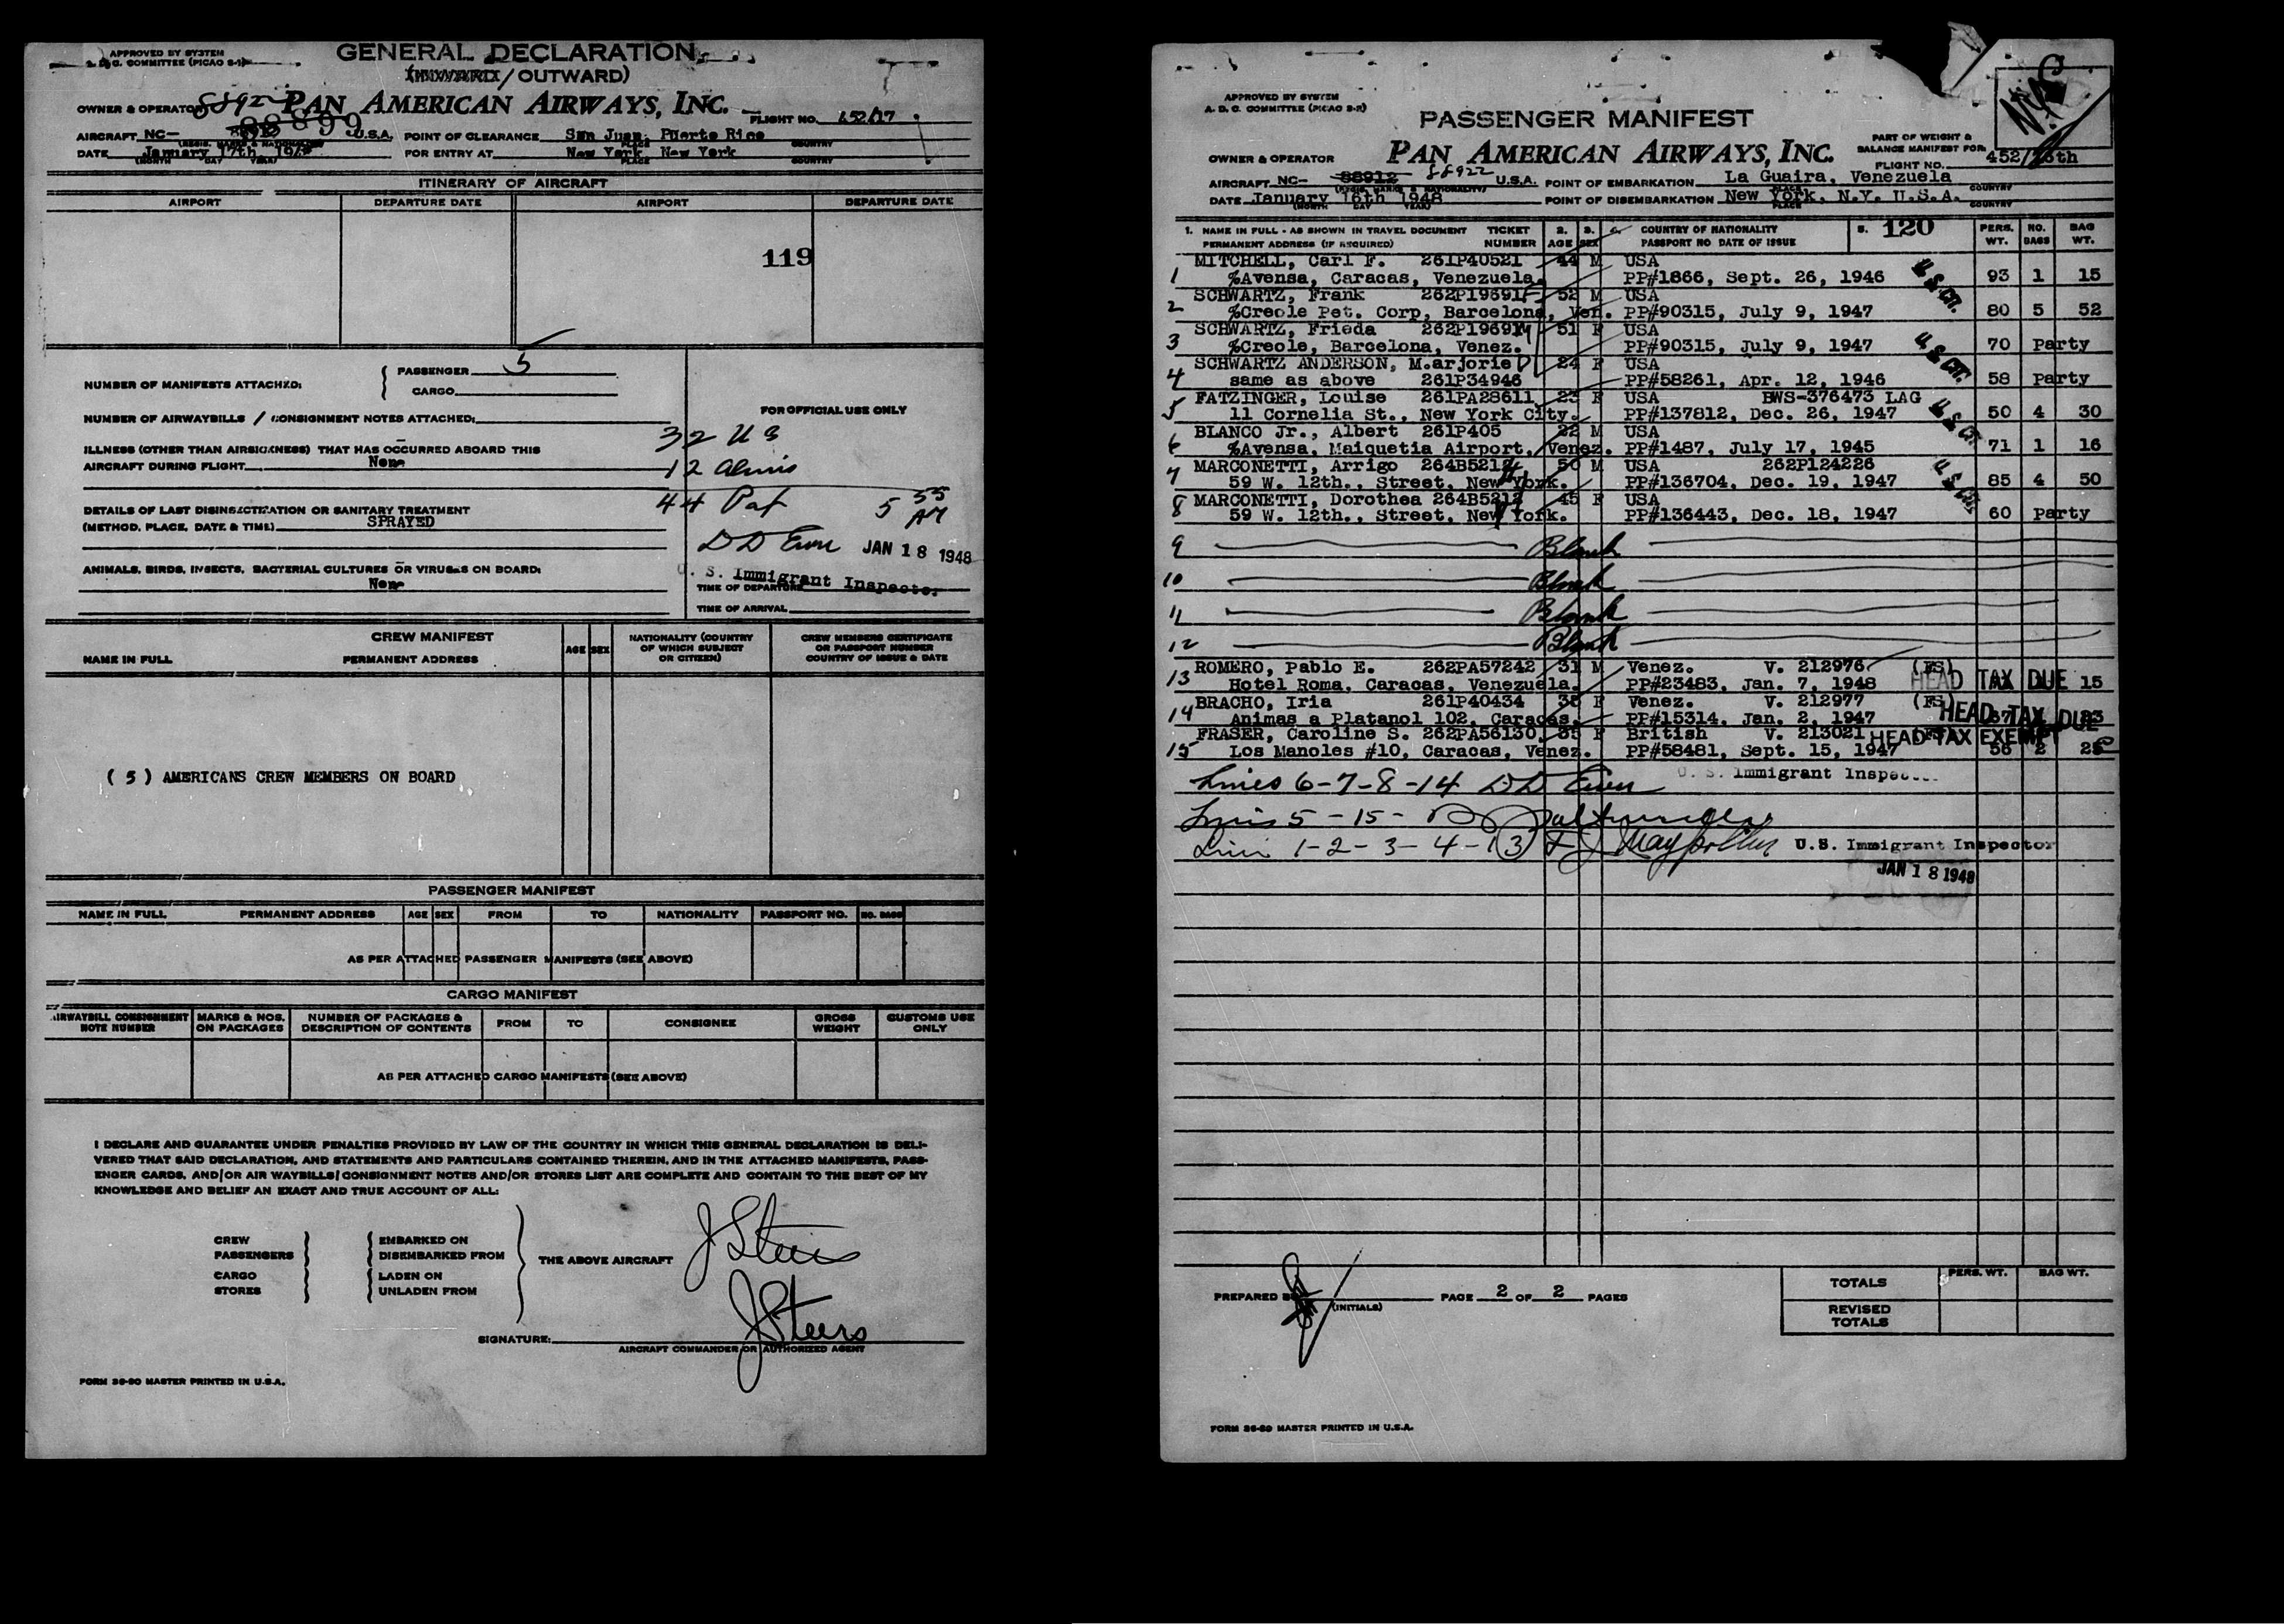 APPROVED BY SYSTEM
A. D. C. COMMITTEE (PICAO S-1)
GENERAL DECLARATION
(INWARD / OUTWARD)
OWNER & OPERATOR PAN AMERICAN AIRWAYS, INC.
FLIGHT NO. 452/17
88922
88899
AIRCRAFT NC- U.S.A. POINT OF CLEARANCE San Juan, Puerto Rico
(REGIS. MARKS & NATIONALITY) PLACE COUNTRY
DATE January 17th 194 FOR ENTRY AT New York New York
(MONTH DAY YEAR) PLACE COUNTRY
ITINERARY OF AIRCRAFT
AIRPORT DEPARTURE DATE AIRPORT DEPARTURE DATE
119
NUMBER OF MANIFESTS ATTACHED: { PASSENGER 5
CARGO
NUMBER OF AIRWAYBILLS / CONSIGNMENT NOTES ATTACHED:
FOR OFFICIAL USE ONLY
32 US
ILLNESS (OTHER THAN AIRSICKNESS) THAT HAS OCCURRED ABOARD THIS
AIRCRAFT DURING FLIGHT None
12 aliens
44 Pat 5 55 AM
DETAILS OF LAST DISINSECTIZATION OR SANITARY TREATMENT
(METHOD, PLACE, DATE & TIME) SPRAYED
DD Ewen JAN 18 1948
ANIMALS, BIRDS, INSECTS, BACTERIAL CULTURES OR VIRUSES ON BOARD:
None
U. S. Immigrant Inspector
TIME OF DEPARTURE
TIME OF ARRIVAL
CREW MANIFEST
NAME IN FULL PERMANENT ADDRESS AGE SEX NATIONALITY (COUNTRY OF WHICH SUBJECT OR CITIZEN) CREW MEMBERS CERTIFICATE OR PASSPORT NUMBER COUNTRY OF ISSUE & DATE
( 5 ) AMERICANS CREW MEMBERS ON BOARD
PASSENGER MANIFEST
NAME IN FULL PERMANENT ADDRESS AGE SEX FROM TO NATIONALITY PASSPORT NO. NO. BAGS
AS PER ATTACHED PASSENGER MANIFESTS (SEE ABOVE)
CARGO MANIFEST
AIRWAYBILL CONSIGNMENT NOTE NUMBER MARKS & NOS. ON PACKAGES NUMBER OF PACKAGES & DESCRIPTION OF CONTENTS FROM TO CONSIGNEE GROSS WEIGHT CUSTOMS USE ONLY
AS PER ATTACHED CARGO MANIFESTS (SEE ABOVE)
I DECLARE AND GUARANTEE UNDER PENALTIES PROVIDED BY LAW OF THE COUNTRY IN WHICH THIS GENERAL DECLARATION IS DELI-
VERED THAT SAID DECLARATION, AND STATEMENTS AND PARTICULARS CONTAINED THEREIN, AND IN THE ATTACHED MANIFESTS, PASS-
ENGER CARDS, AND/OR AIR WAYBILLS/CONSIGNMENT NOTES AND/OR STORES LIST ARE COMPLETE AND CONTAIN TO THE BEST OF MY
KNOWLEDGE AND BELIEF AN EXACT AND TRUE ACCOUNT OF ALL:
CREW EMBARKED ON
PASSENGERS DISEMBARKED FROM
THE ABOVE AIRCRAFT J Steers
CARGO LADEN ON
STORES UNLADEN FROM
SIGNATURE: J Steers
AIRCRAFT COMMANDER OR AUTHORIZED AGENT
FORM 36-80 MASTER PRINTED IN U.S.A.
APPROVED BY SYSTEM
A. D. C. COMMITTEE (PICAO S-2)
PASSENGER MANIFEST
NYC
PART OF WEIGHT &
BALANCE MANIFEST FOR:
OWNER & OPERATOR PAN AMERICAN AIRWAYS, INC.
FLIGHT NO. 452/16th
AIRCRAFT NC- 88912 88922 U.S.A. POINT OF EMBARKATION La Guaira, Venezuela
(REGIS. MARKS & NATIONALITY) PLACE COUNTRY
DATE January 16th 1948 POINT OF DISEMBARKATION New York, N.Y. U.S.A.
(MONTH DAY YEAR) PLACE COUNTRY
1. NAME IN FULL - AS SHOWN IN TRAVEL DOCUMENT TICKET 2. 3. 4. COUNTRY OF NATIONALITY 5. 120 PERS. NO. BAG
PERMANENT ADDRESS (IF REQUIRED) NUMBER AGE SEX PASSPORT NO DATE OF ISSUE WT. BAGS WT.
MITCHELL, Carl F. 261P40521 44 M USA
1 %Avensa, Caracas, Venezuela. PP#1866, Sept. 26, 1946 93 1 15
U.S. CIT.
SCHWARTZ, Frank 262P19691 F 52 M USA
2 %Creole Pet. Corp, Barcelona, Ven. PP#90315, July 9, 1947 80 5 52
SCHWARTZ, Frieda 262P19691 M 51 F USA
3 %Creole, Barcelona, Venez. PP#90315, July 9, 1947 70 Party
U.S. CIT.
SCHWARTZ ANDERSON, M.arjorie D 24 F USA
4 same as above 261P34946 PP#58261, Apr. 12, 1946 58 Party
FATZINGER, Louise 261PA28611 23 F USA BWS-376473 LAG
5 11 Cornelia St., New York City. PP#137812, Dec. 26, 1947 50 4 30
U.S. CIT.
BLANCO Jr., Albert 261P405 22 M USA
6 %Avensa, Maiquetia Airport, Venez. PP#1487, July 17, 1945 71 1 16
MARCONETTI, Arrigo 264B5212 50 M USA 262P124226
7 59 W. 12th., Street, New York. PP#136704, Dec. 19, 1947 85 4 50
U.S. CIT.
MARCONETTI, Dorothea 264B5212 45 F USA
8 59 W. 12th., Street, New York. PP#136443, Dec. 18, 1947 60 Party
9 Blank
10 Blank
11 Blank
12 Blank
ROMERO, Pablo E. 262PA57242 31 M Venez. V. 212976 (FS)
13 Hotel Roma, Caracas, Venezuela. PP#23483, Jan. 7, 1948 HEAD TAX DUE 15
BRACHO, Iria 261P40434 35 F Venez. V. 212977 (FS)
14 Animas a Platanol 102, Caracas. PP#15314, Jan. 2, 1947 HEAD TAX DUE
FRASER, Caroline S. 262PA56130 35 F British V. 213021 HEAD TAX EXEMPT
15 Los Manoles #10, Caracas, Venez. PP#58481, Sept. 15, 1947 56 2
Lines 6-7-8-14 DD Ewen U. S. Immigrant Inspector
Lines 5 - 15 -
Lines 1-2-3-4-13 U.S. Immigrant Inspector
JAN 18 1948
PREPARED BY (INITIALS) PAGE 2 OF 2 PAGES
PERS. WT. BAG WT.
TOTALS
REVISED TOTALS
FORM 36-80 MASTER PRINTED IN U.S.A.